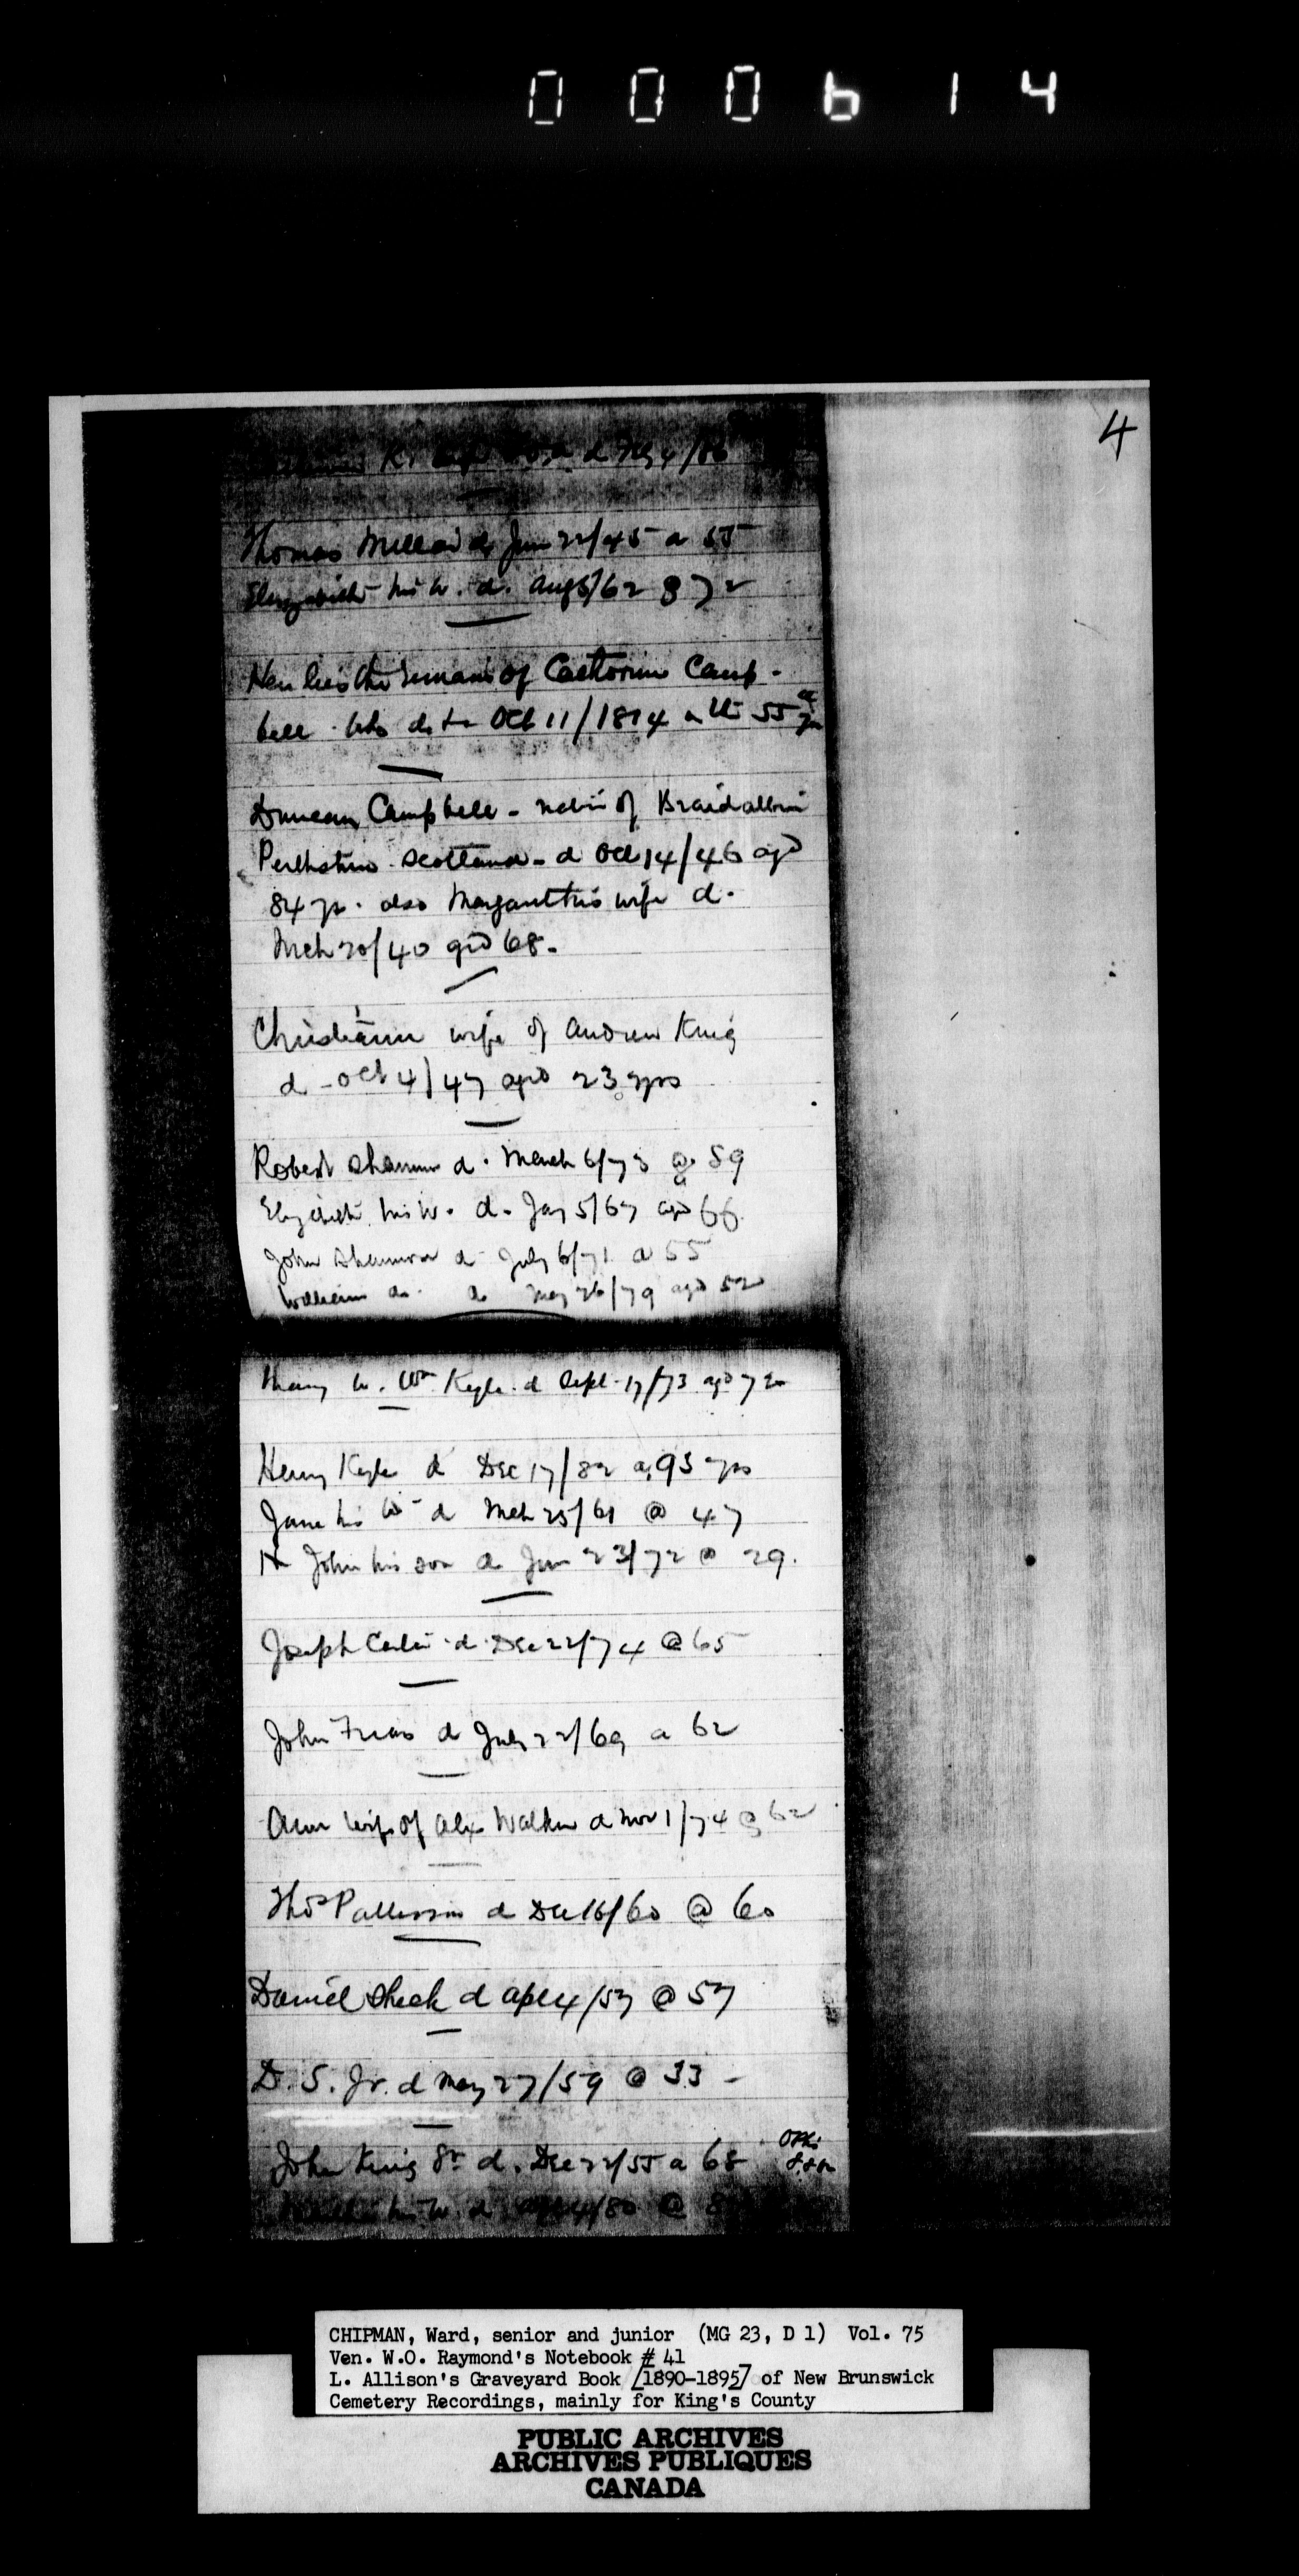 000614
4
K. d Feby 4/86
Thomas d Jan 22/45 a 55
Elizabeth his w. d. Aug 5/62 72
Here lies the remains of Camp-
bell who d. Oct 11/18 4 55
Duncan Campbell - native of Braidalbin
Perthshire Scotland - d Oct 14/46 agd
84 yrs. also Margaret his wife d.
Mch 20/40 agd 68.
Christiann wife of Andrew King
d - Oct 4/47 agd 23 yrs
Robert Shannon d. March 6/73 a. 59
Elizabeth his w. d. Jay 5/67 agd 66
John Shannon d July 6/71 a 55
William do. d May 26/79 agd 52
Mary w. Wm Kyle d Sept 17/73 agd 72
Henry Kyle d Dec 17/82 a 93 yrs
Jane his w d Mch 25/61 @ 47
H John his son d Jan 23/72 @ 29.
Joseph d. Dec 22/74 @ 65
John d July 22/69 a 62
Ann wife of Alex Walker d Nov 1/74 @ 62
Thos Patterson d Dec 16/60 @ 60
Daniel Sheck d Apl 4/57 @ 57
D. S. Jr. d May 27/59 @ 33 -
John King Sr d. Dec 22/55 a 68
his w. d. 4/80 @ 8
CHIPMAN, Ward, senior and junior (MG 23, D 1) Vol. 75
Ven. W.O. Raymond's Notebook # 41
L. Allison's Graveyard Book [1890-1895] of New Brunswick
Cemetery Recordings, mainly for King's County
PUBLIC ARCHIVES
ARCHIVES PUBLIQUES
CANADA